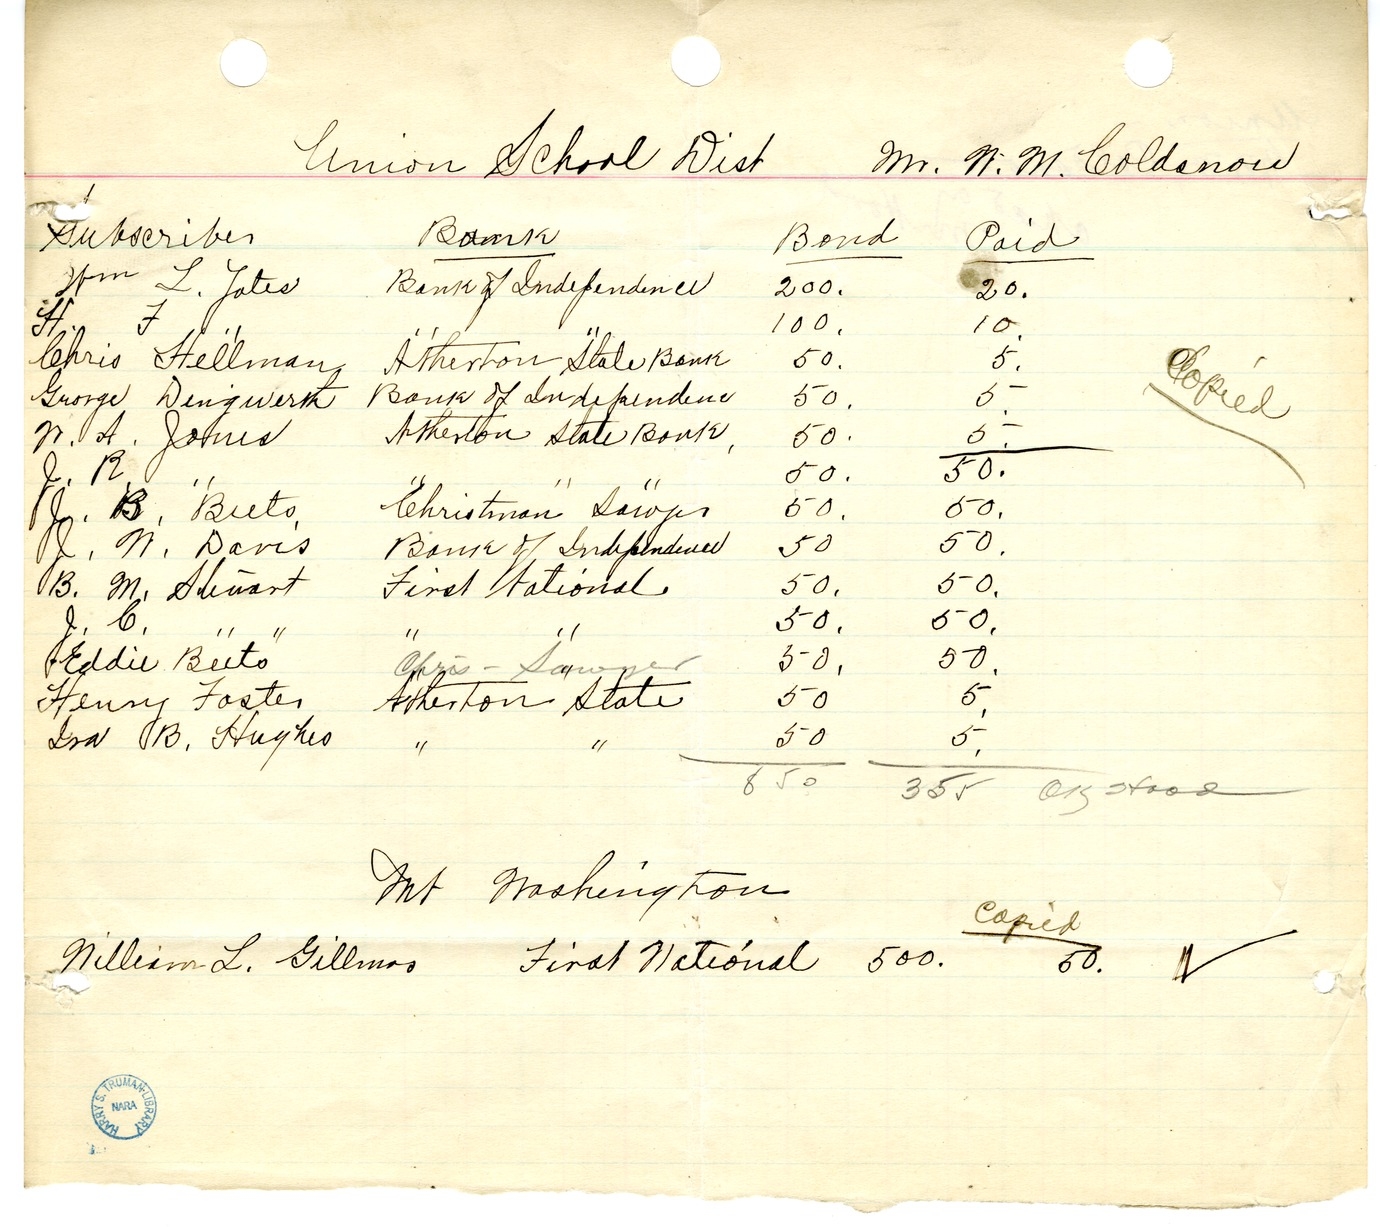 Union School Dist Mr. W. M. Coldsnow
Subscriber Bank Bond Paid
Wm L. Yates Bank of Independence 200. 20.
H. F " " " 100. 10.
Chris Hellman Atherton State Bank 50. 5.
George Dengwerth Bank of Independenc 50. 5
W. A. Jones Atherton State Bank, 50. 5.
J. R. " " " " 50. 50.
J. B. Beets, Christman Sawyer 50. 50.
J. W. Davis Bank of Independence 50 50.
B. M. Stewart First National. 50. 50.
J. C. " " " " 50. 50.
Eddie Beets Chris - Sawyer 50. 50.
Henry Foster Atherton State 50 5.
Ira B. Hughes " " 50 5.
850 355 OK Hood
Copied
Mt Washington
Copied
William L. Gillmas First National 500. 50.
HARRY S. TRUMAN LIBRARY
NARA